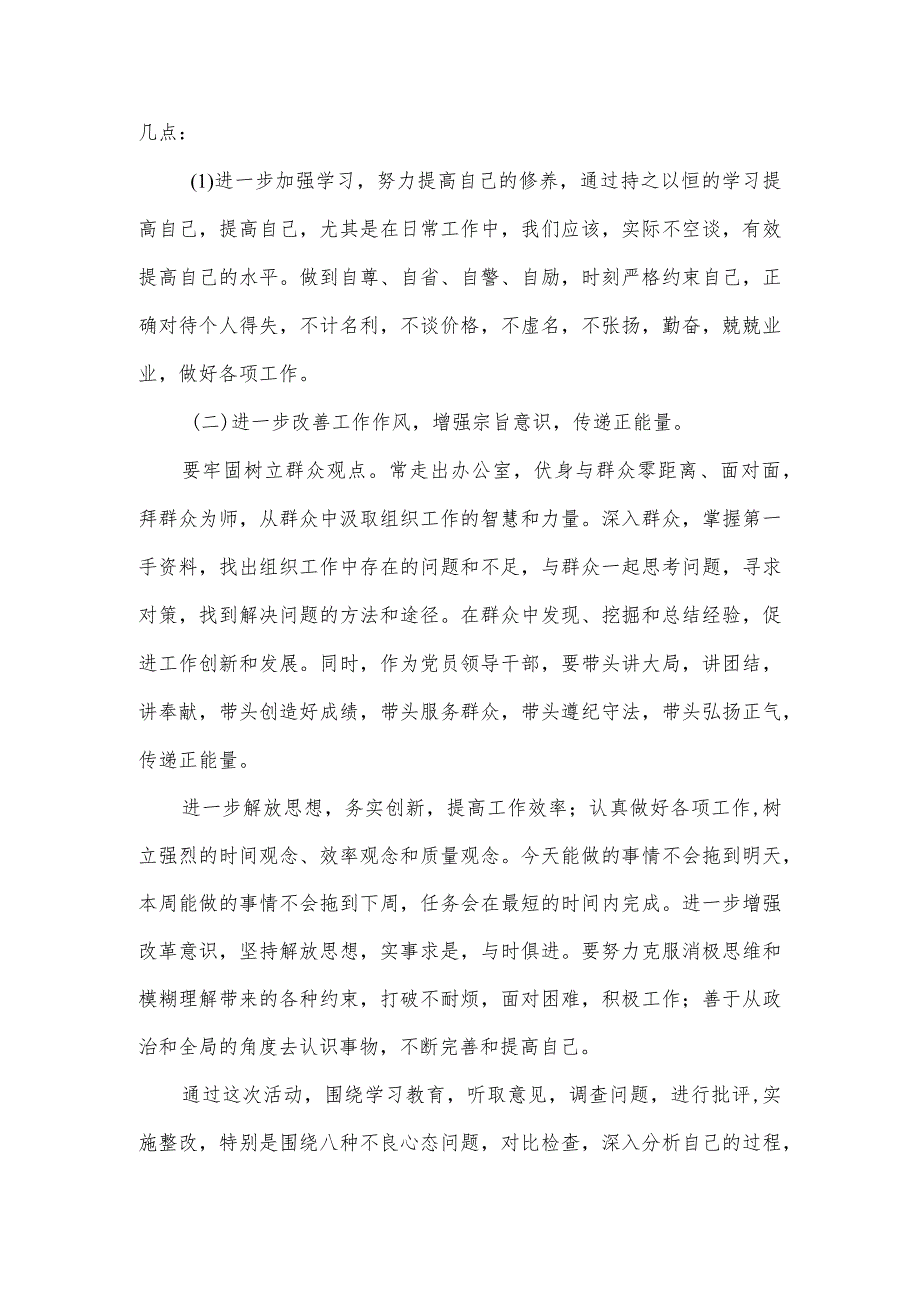 几点：
(1)进一步加强学习，努力提高自己的修养，通过持之以恒的学习提
高自己，提高自己，尤其是在日常工作中，我们应该，实际不空谈，有效
提高自己的水平。做到自尊、自省、自警、自励，时刻严格约束自己，正
确对待个人得失，不计名利，不谈价格，不虚名，不张扬，勤奋，兢兢业
业，做好各项工作。
(二)进一步改善工作作风，增强宗旨意识，传递正能量。
要牢固树立群众观点。常走出办公室，伏身与群众零距离、面对面，
拜群众为师，从群众中汲取组织工作的智慧和力量。深入群众，掌握第一
手资料，找出组织工作中存在的问题和不足，与群众一起思考问题，寻求
对策，找到解决问题的方法和途径。在群众中发现、挖掘和总结经验，促
进工作创新和发展。同时，作为党员领导干部，要带头讲大局，讲团结，
讲奉献，带头创造好成绩，带头服务群众，带头遵纪守法，带头弘扬正气，
传递正能量。
进一步解放思想，务实创新，提高工作效率；认真做好各项工作,树
立强烈的时间观念、效率观念和质量观念。今天能做的事情不会拖到明天，
本周能做的事情不会拖到下周，任务会在最短的时间内完成。进一步增强
改革意识，坚持解放思想，实事求是，与时俱进。要努力克服消极思维和
模糊理解带来的各种约束，打破不耐烦，面对困难，积极工作；善于从政
治和全局的角度去认识事物，不断完善和提高自己。
通过这次活动，围绕学习教育，听取意见，调查问题，进行批评,实
施整改，特别是围绕八种不良心态问题，对比检查，深入分析自己的过程，